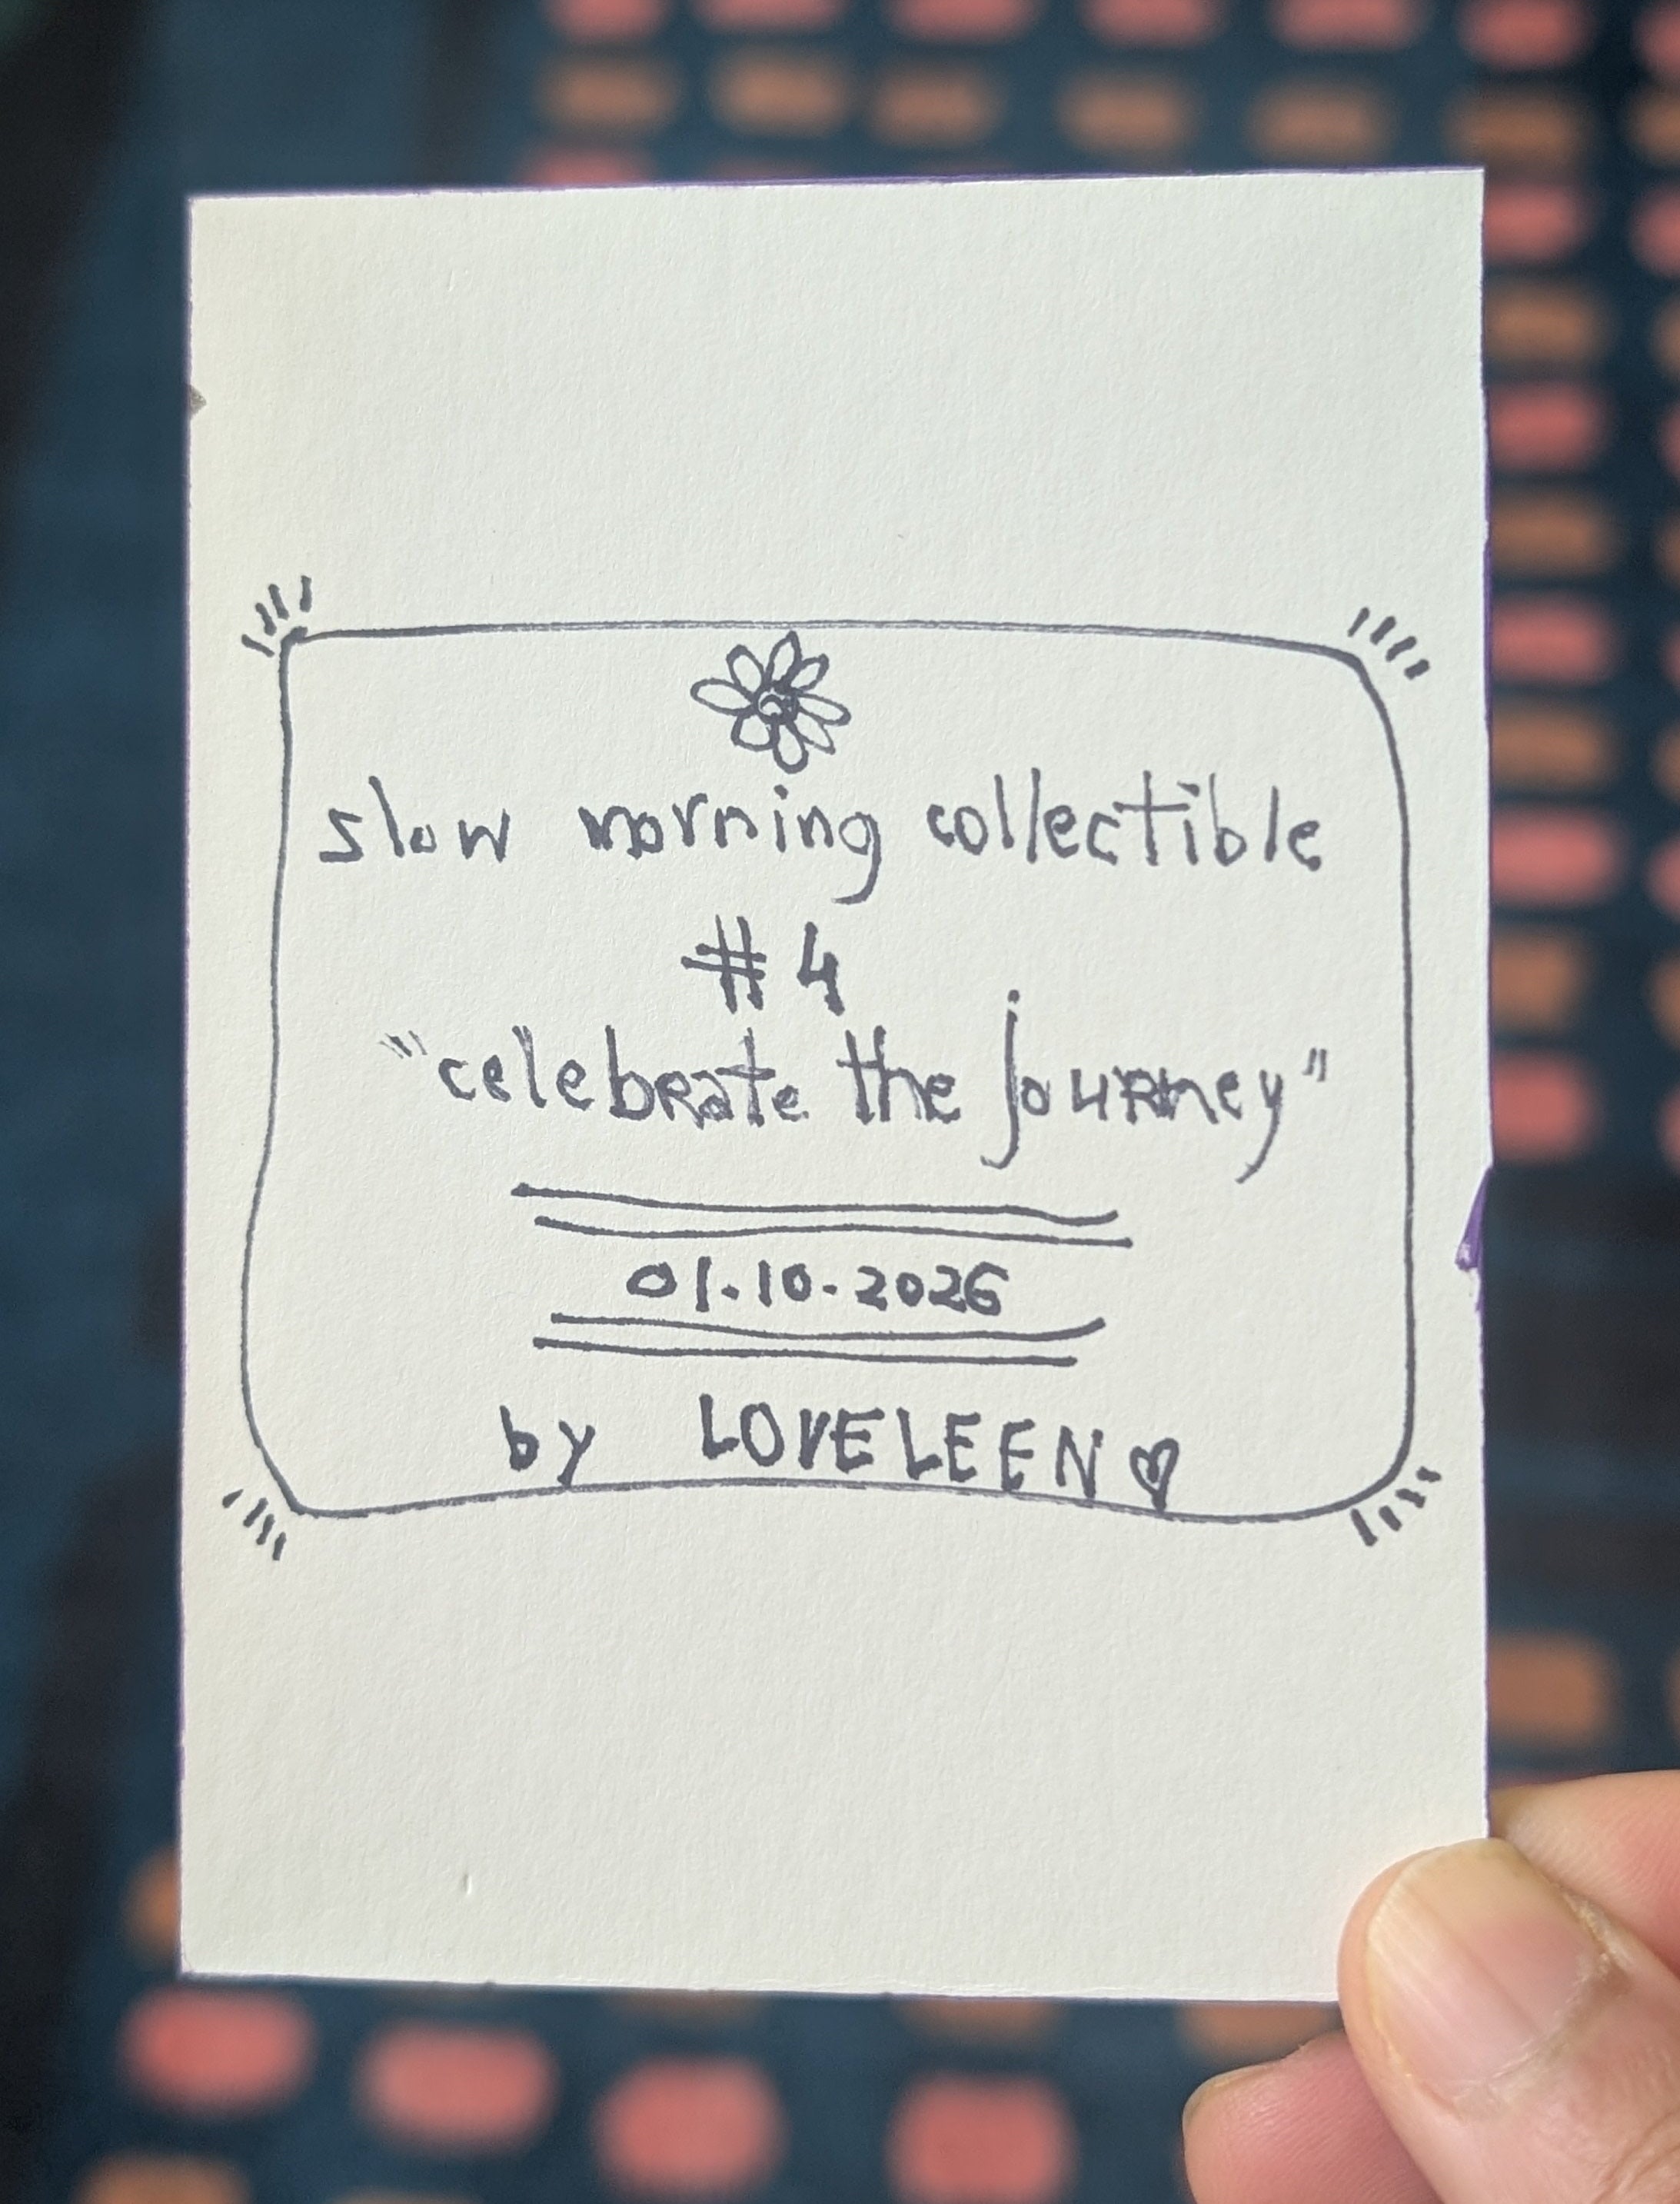 slow morning collectible
#4
"celebrate the journey"
01.10.2026
by LOVELEEN